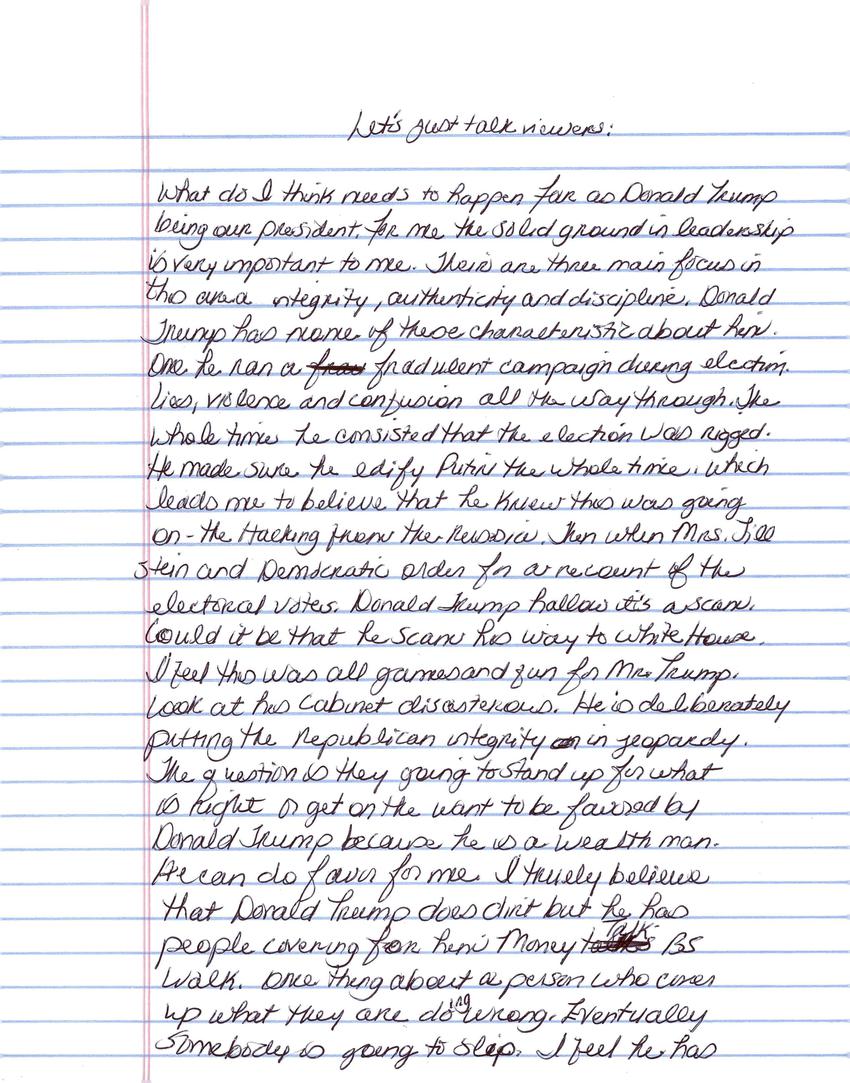 Let's just talk viewers:
What do I think needs to happen far as Donald Trump
being our president. For me the solid ground in leadership
is very important to me. Their are three main focus in
this area integrity, authenticity and discipline. Donald
Trump has none of these characteristic about him.
One he ran a frau fradulent campaign during election.
Lies, violence and confusion all the way through. The
whole time he consisted that the election was rigged.
He made sure he edify Putin the whole time. which
leads me to believe that he knew this was going
on - the Hacking from the Russia. Then when Mrs. Jill
Stein and Democratic order for a recount of the
electorical votes. Donald Trump hallow it's a scam.
Could it be that he scam his way to White House.
I feel this was all games and fun for Mr. Trump.
Look at his Cabinet disasterous. He is deliberately
putting the republican integrity in jeopardy.
The question is they going to stand up for what
is right or get on the want to be favored by
Donald Trump because he is a wealth man.
He can do favor for me. I truely believe
that Donald Trump does dirt but he has
people covering for him Money Talk BS
Walk. One thing about a person who cover
up what they are doing wrong. Eventually
Somebody is going to slip. I feel he has